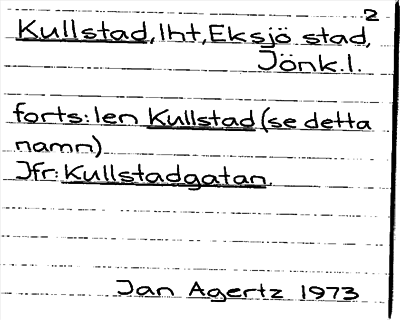 2
Kullstad, lht, Eksjö stad,
Jönk.l.
forts: len Kullstad (se detta
namn)
Jfr: Kullstadgatan.
Jan Agertz 1973